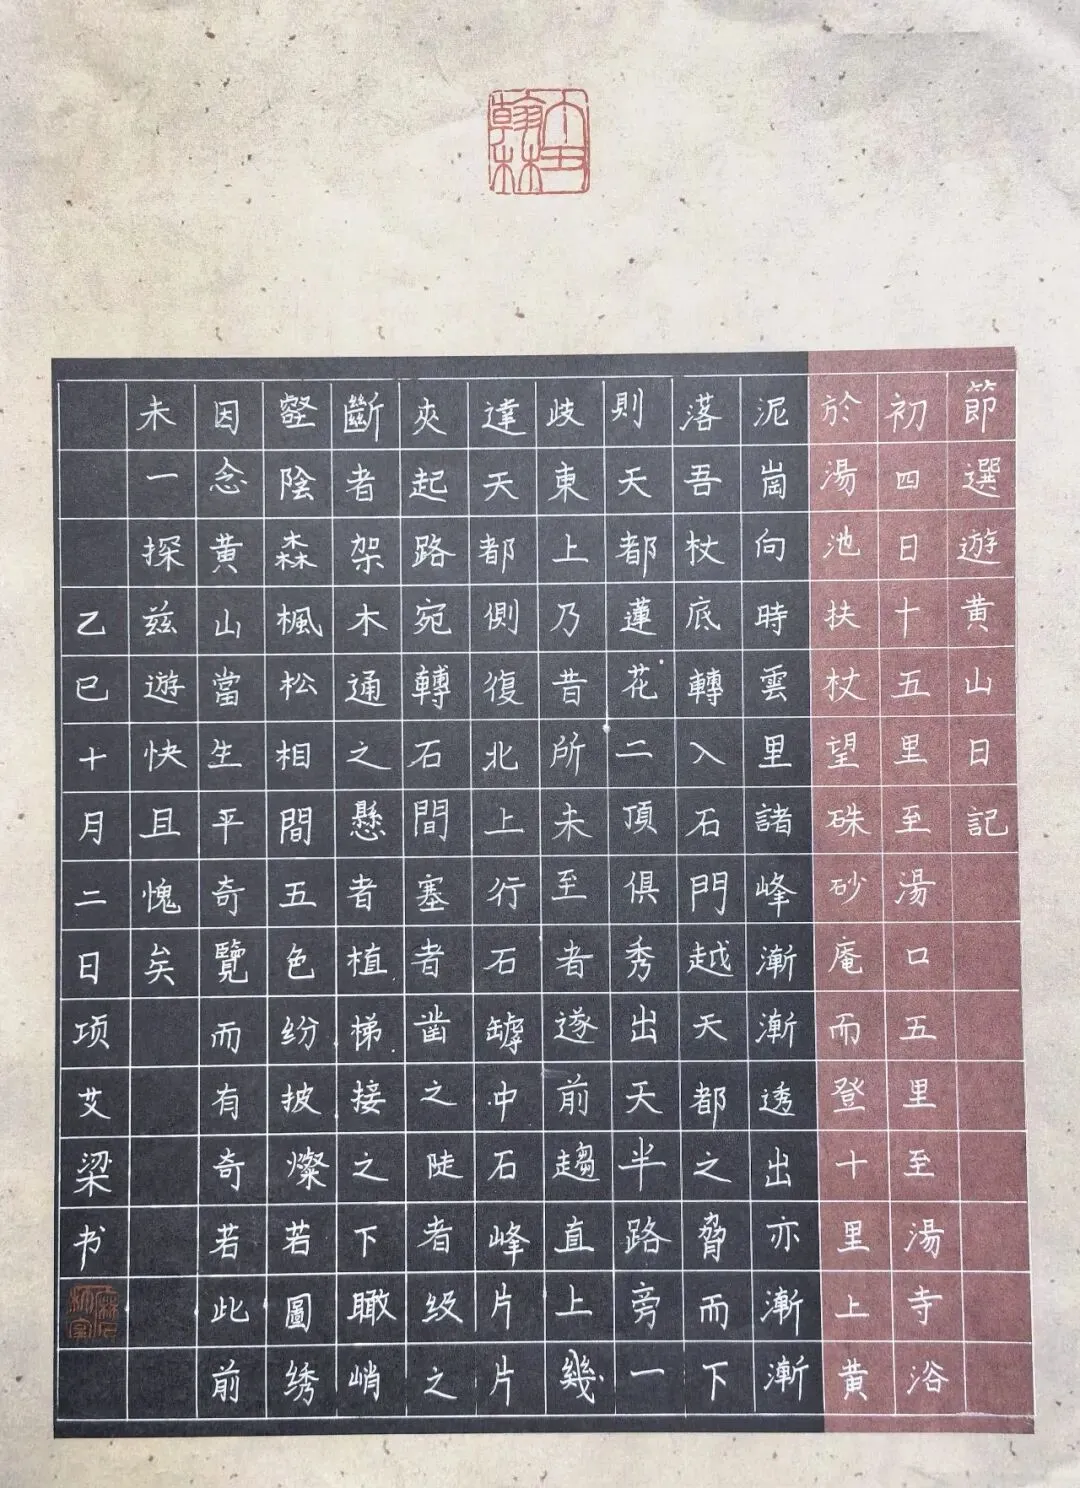 節選遊黄山日記
初四日十五里至湯口五里至湯寺浴
於湯池扶杖望硃砂庵而登十里上黄
泥崗向時雲里諸峰漸漸透出亦漸漸
落吾杖底轉入石門越天都之脅而下
則天都蓮花二頂俱秀出天半路旁一
歧東上乃昔所未至者遂前趨直上幾
達天都側復北上行石罅中石峰片片
夾起路宛轉石間塞者凿之陡者级之
斷者架木通之懸者植梯接之下瞰峭
壑陰森楓松相間五色纷披燦若圖绣
因念黄山當生平奇覽而有奇若此前
未一探兹遊快且愧矣
乙巳十月二日项艾梁书